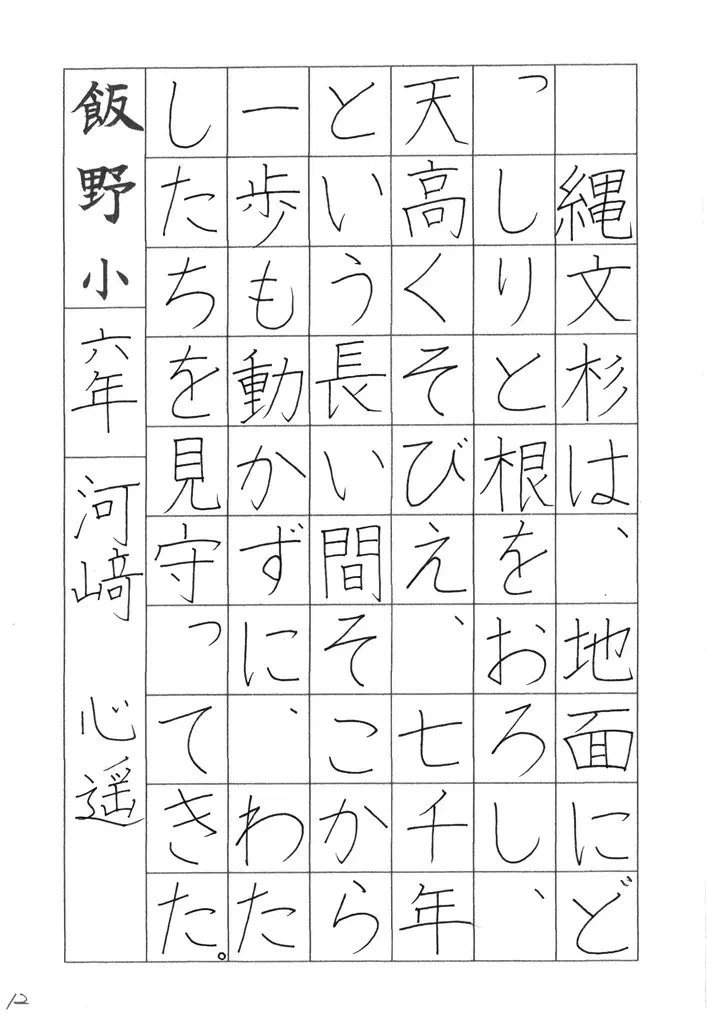 縄文杉は、地面にど
っしりと根をおろし、
天高くそびえ、七千年
という長い間そこから
一歩も動かずに、わた
したちを見守ってきた。
飯野小 六年 河﨑 心遥
12